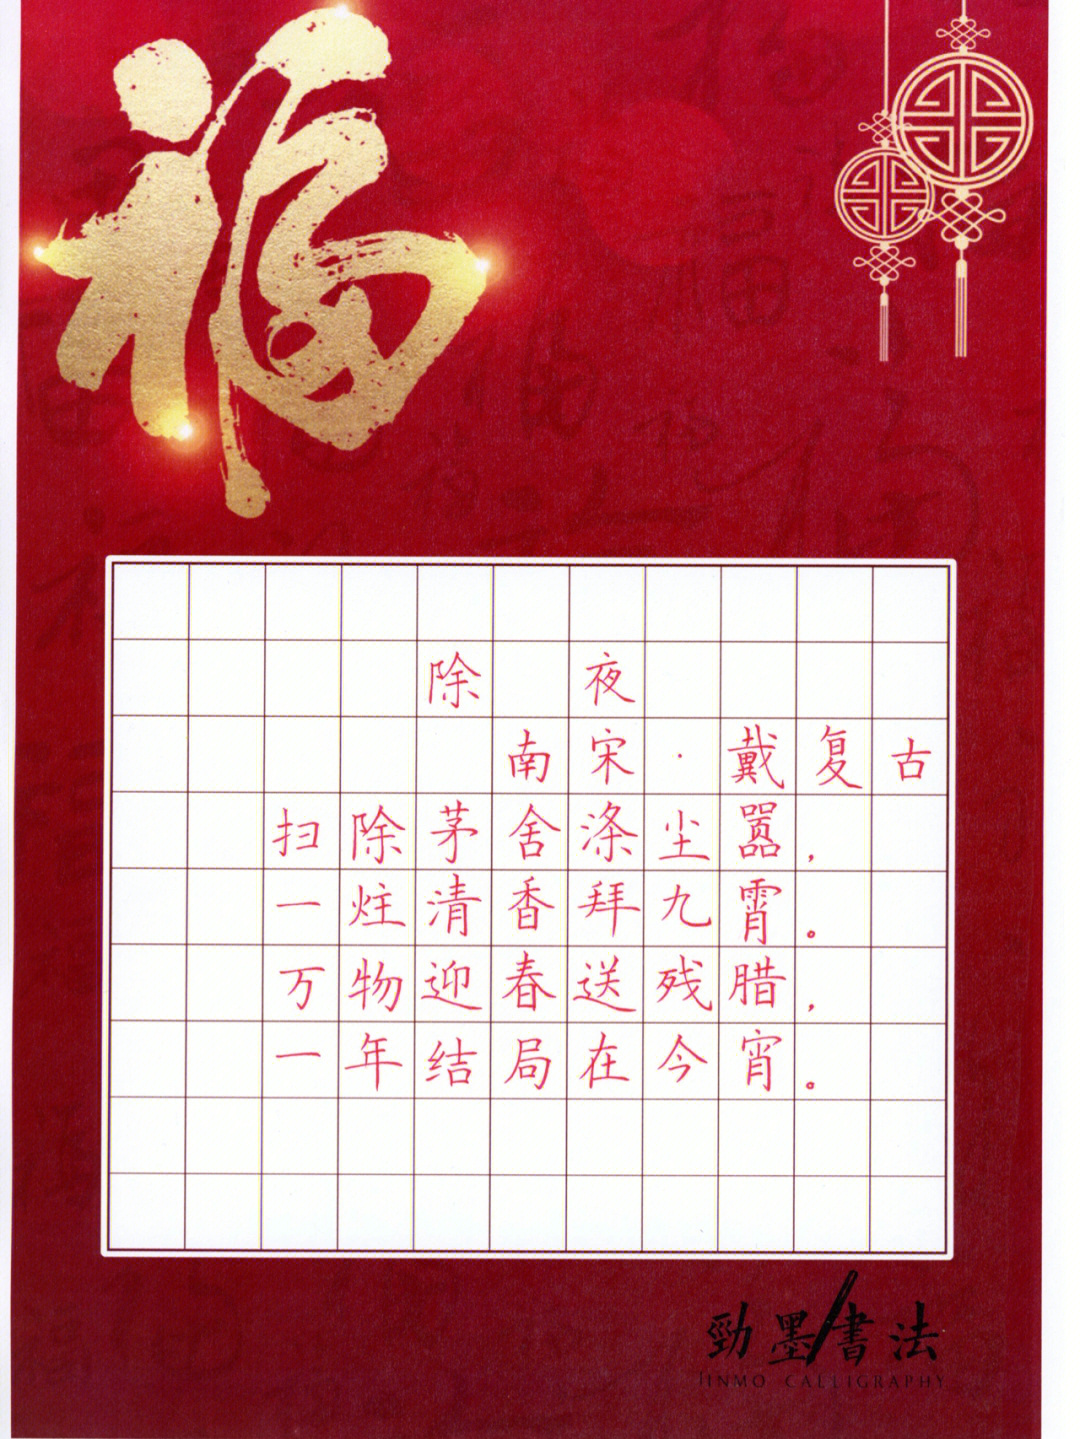 福
除 夜
南宋·戴复古
扫除茅舍涤尘嚣，
一炷清香拜九霄。
万物迎春送残腊，
一年结局在今宵。
勁墨書法
JINMO CALLIGRAPHY